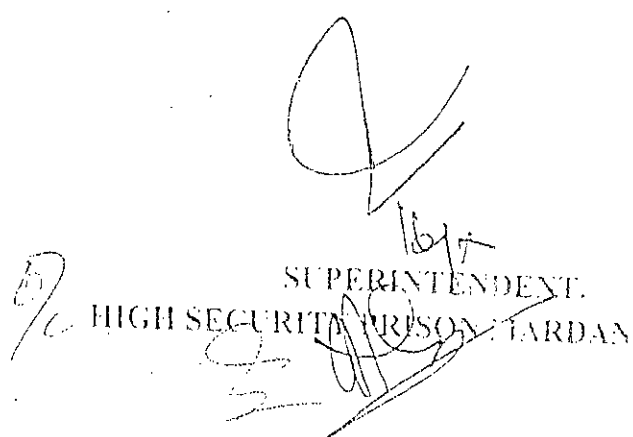 SUPERINTENDENT.
HIGH SECURITY PRISON MARDAN